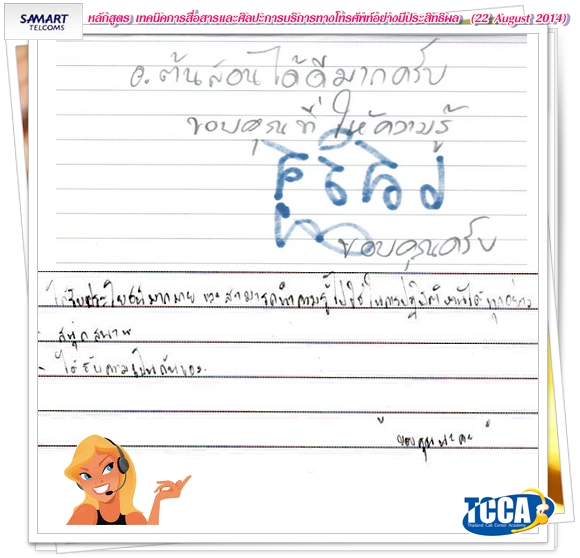 SAMART
TELCOMS
หลักสูตร เทคนิคการสื่อสารและศิลปะการบริการทางโทรศัพท์อย่างมีประสิทธิผล (22 August 2014)
อ.ต้นสอนได้ดีมากครับ
ขอบคุณที่ให้ความรู้
ขอบคุณครับ
ได้รับประโยชน์มากมาย และสามารถนำความรู้ไปใช้ในการปฏิบัติงานได้ทุกอย่าง
- สนุกสนาน
- ได้รับความเป็นกันเอง
ขอบคุณนะคะ
TCCA
Thailand Call Center Academy